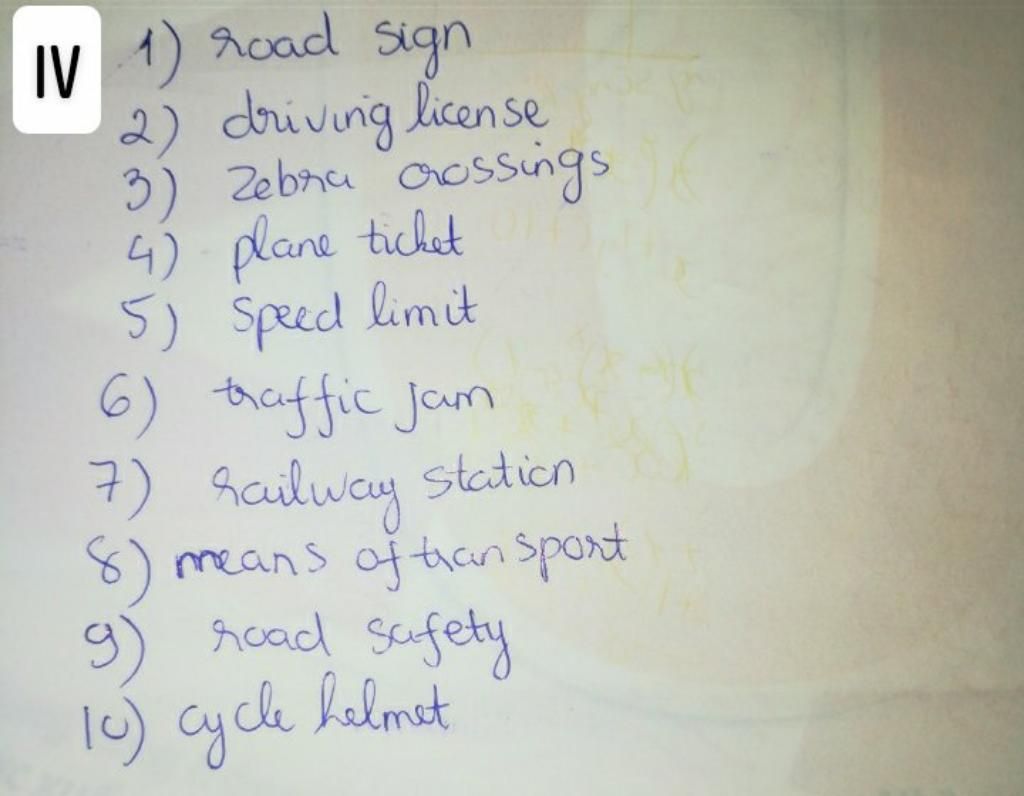 IV
1) road sign
2) driving license
3) zebra crossings
4) plane ticket
5) speed limit
6) traffic jam
7) railway station
8) means of transport
9) road safety
10) cycle helmet